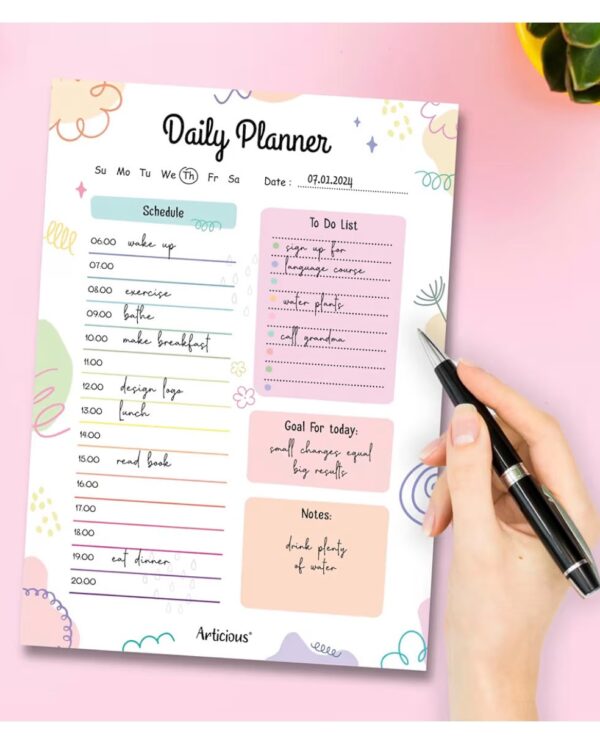 Daily Planner
Su Mo Tu We Th Fr Sa
Date : 07.01.2024
Schedule
06.00 wake up
07.00
08.00 exercise
09.00 bathe
10.00 make breakfast
11.00
12.00 design logo
13.00 lunch
14.00
15.00 read book
16.00
17.00
18.00
19.00 eat dinner
20.00
To Do List
sign up for
language course
water plants
call grandma
Goal For today:
small changes equal
big results
Notes:
drink plenty
of water
Articious®